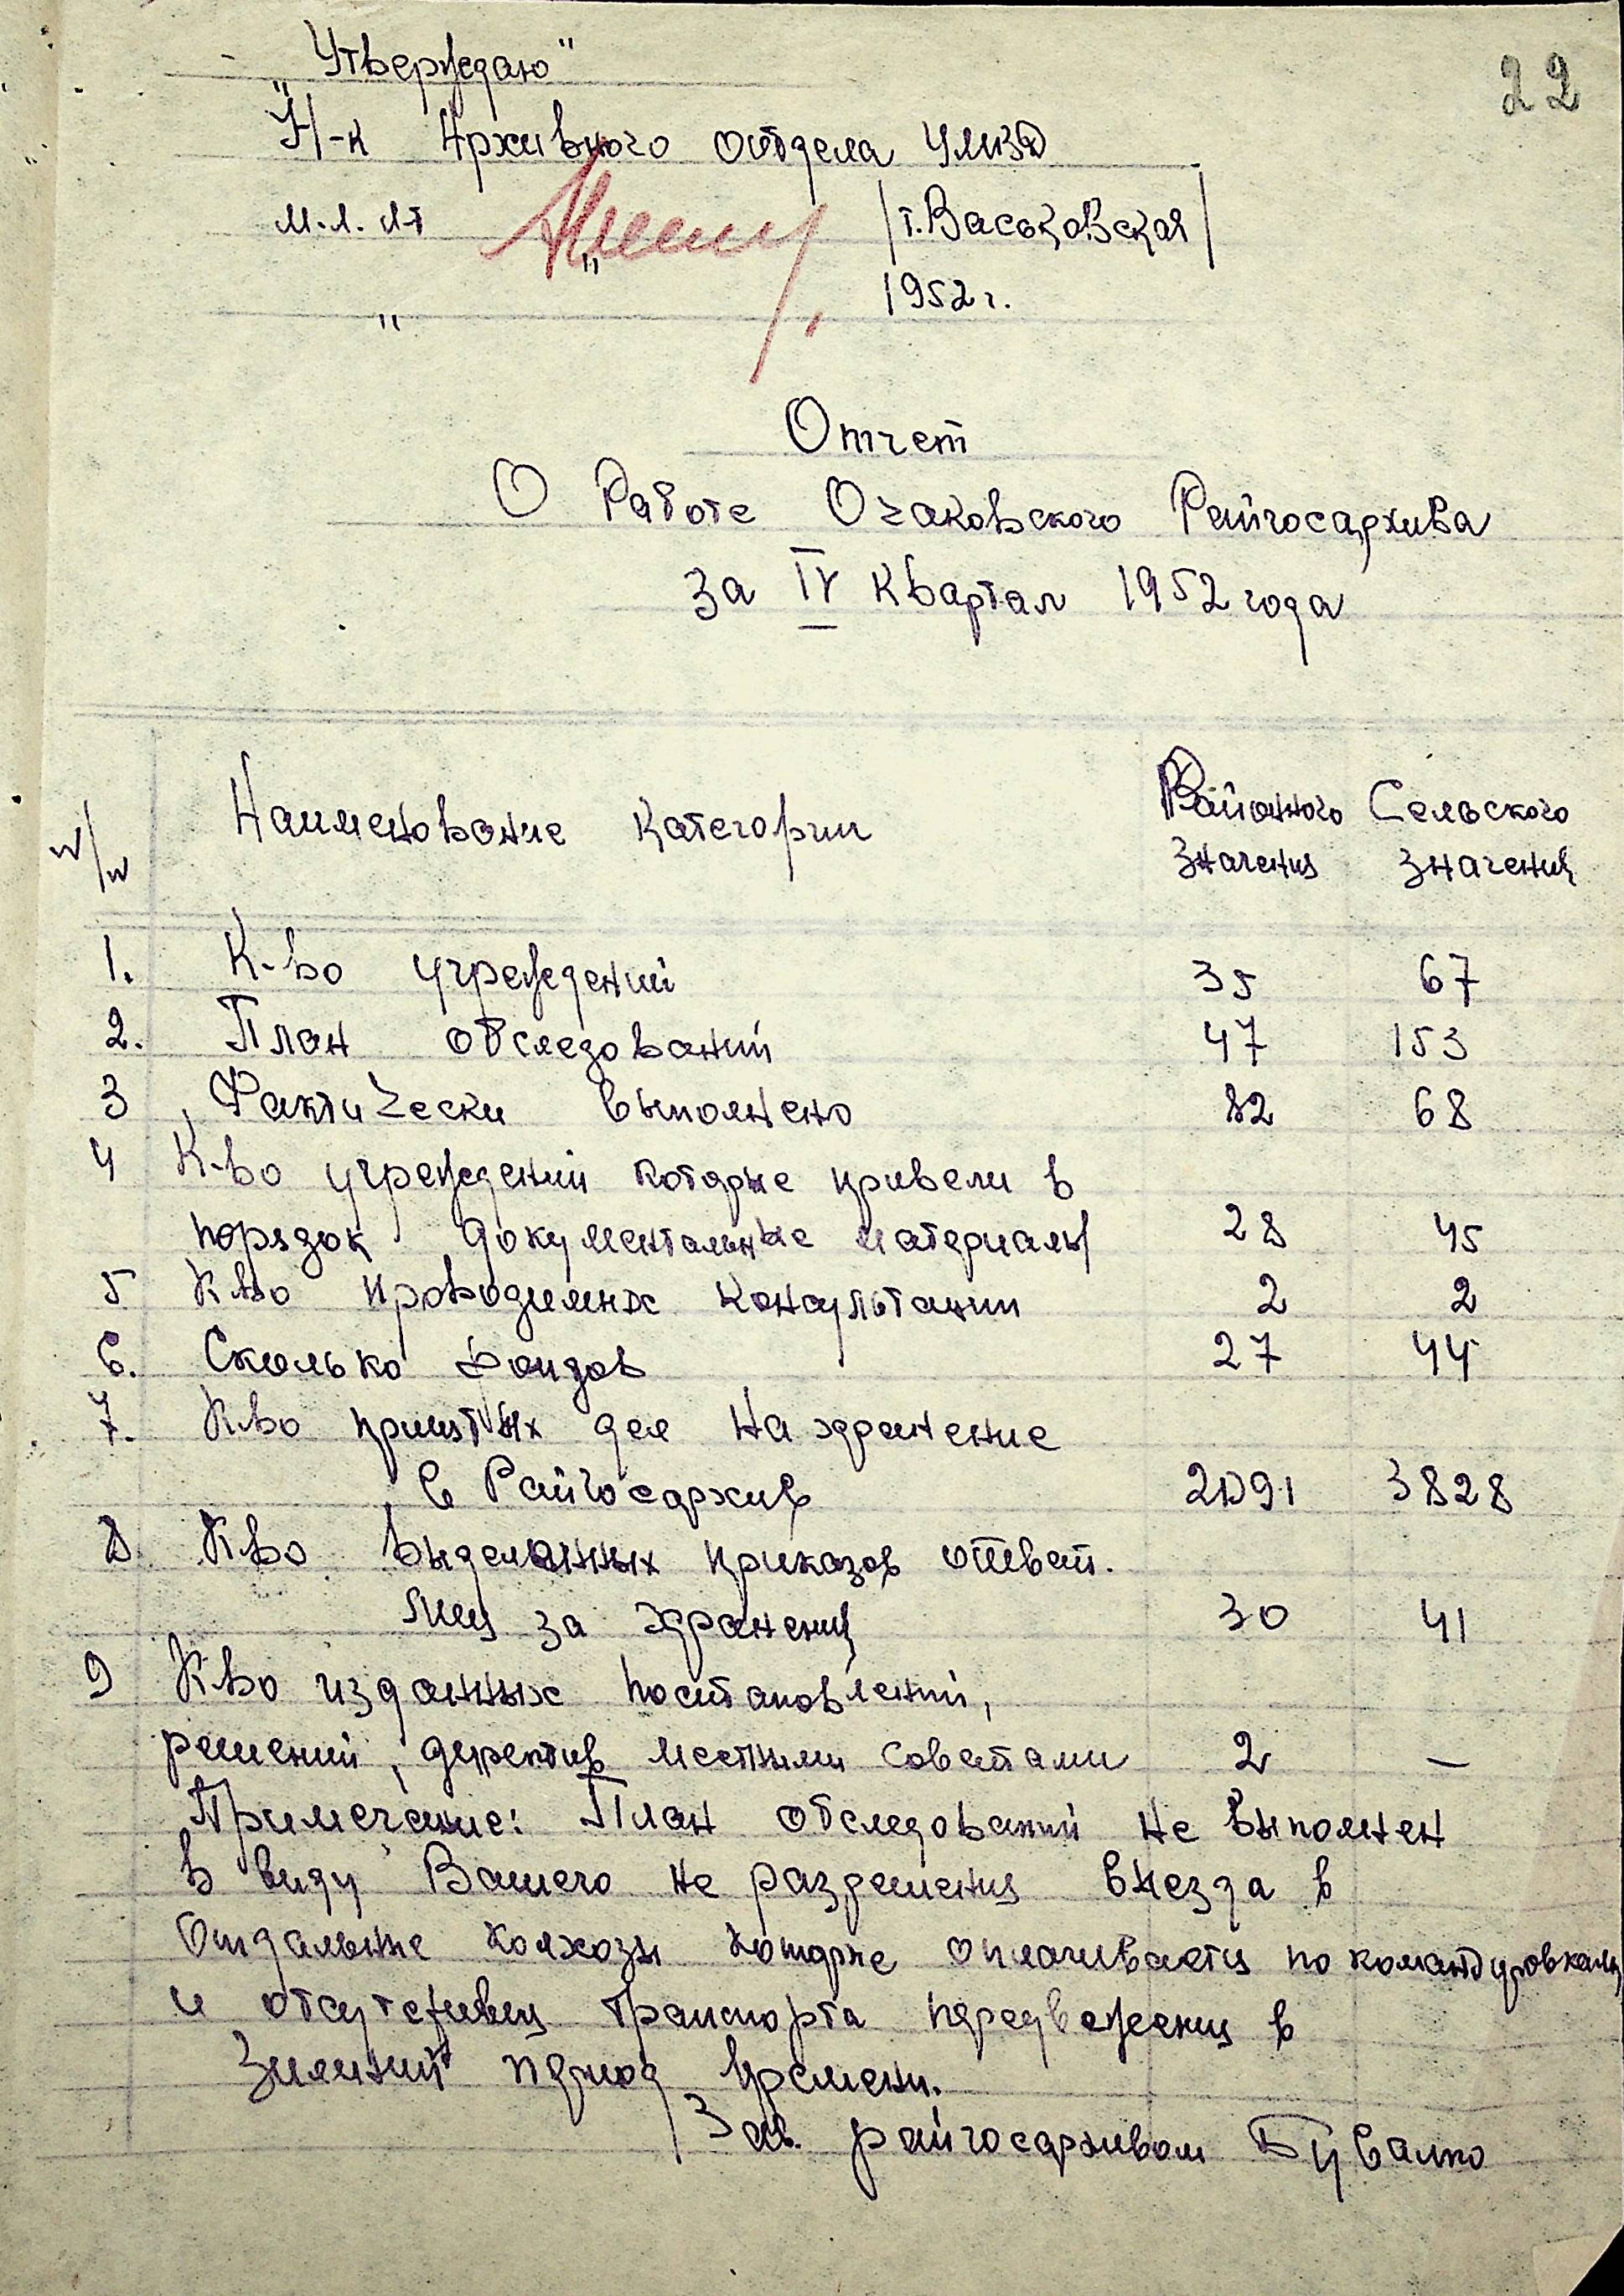 22
„Утверждаю"
Н-к Архивного отдела УМГБ
м.л. л-т /т.Васьковская/
" " 1952 г.
Отчет
О Работе Очаковского Райгосархива
за IV Квартал 1952 года
N/N Наименование категории Районного значения Сельского значения
1. К-во учреждений 35 67
2. План обследований 47 153
3 Фактически выполнено 82 68
4 К-во учреждений которые привели в
порядок документальные материалы 28 45
5 К-во проводимых консультации 2 2
6. Сколько фондов 27 44
7. К-во принятых дел на хранение
в Райгосархив 2091 3828
8. К-во выделанных приказов ответ.
лиц за хранения 30 41
9 К-во изданных постановлений,
решений, директив местными советами 2 —
Примечание: План обследований не выполнен
в виду Вашего не разрешения выезда в
отдалыные колхозы которые оплачивается по командировкам
и отсутствия транспорта передвежения в
Зимний период времени.
Зав. райгосархивом Бувалко